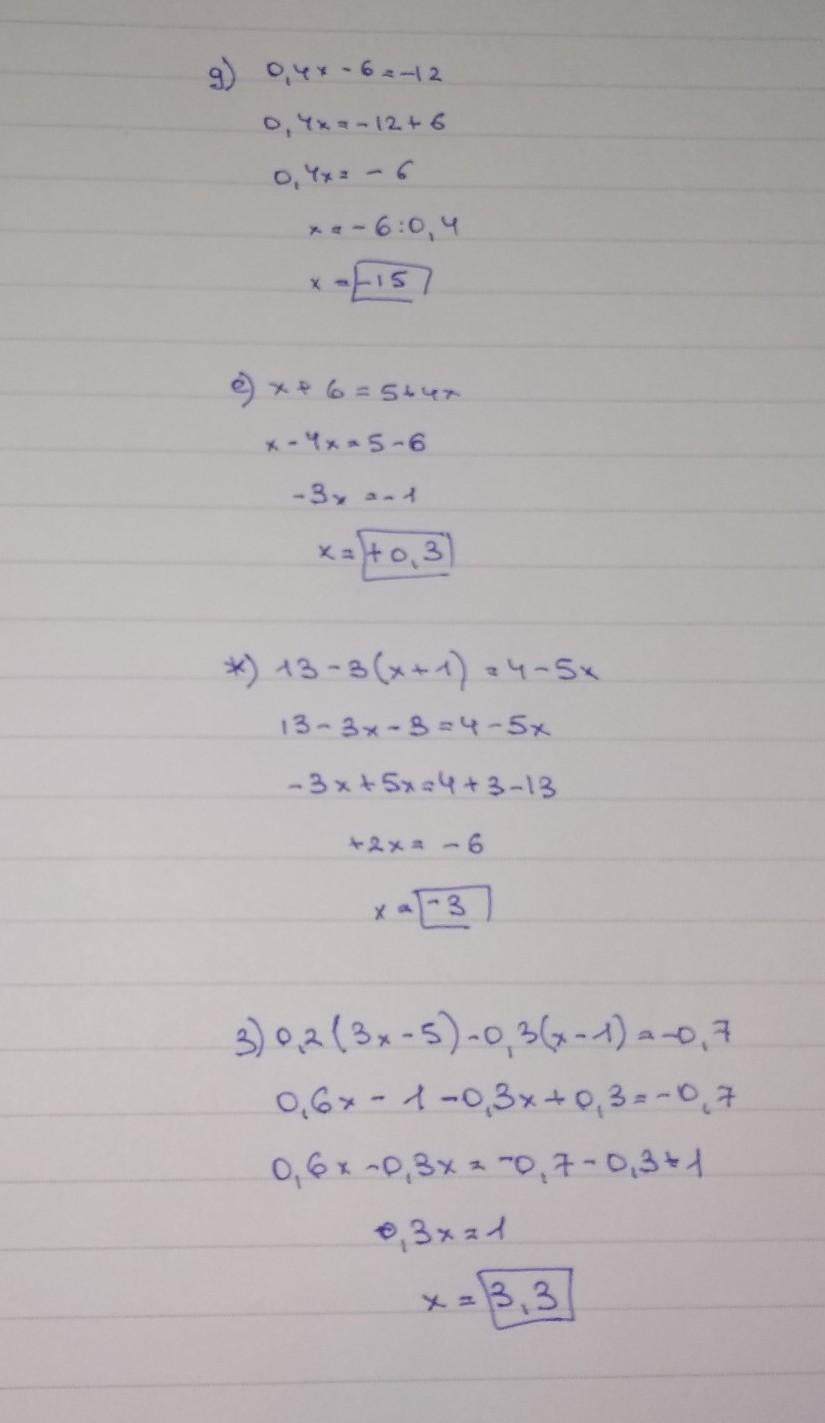 g) 0,4x - 6 = -12
0,4x = -12 + 6
0,4x = - 6
x = - 6 : 0,4
x = -15
e) x + 6 = 5 + 4x
x - 4x = 5 - 6
-3x = -1
x = +0,3
ж) 13 - 3(x + 1) = 4 - 5x
13 - 3x - 3 = 4 - 5x
-3x + 5x = 4 + 3 - 13
+2x = - 6
x = -3
з) 0,2(3x - 5) - 0,3(x - 1) = -0,7
0,6x - 1 - 0,3x + 0,3 = -0,7
0,6x - 0,3x = -0,7 - 0,3 + 1
0,3x = 1
x = 3,3